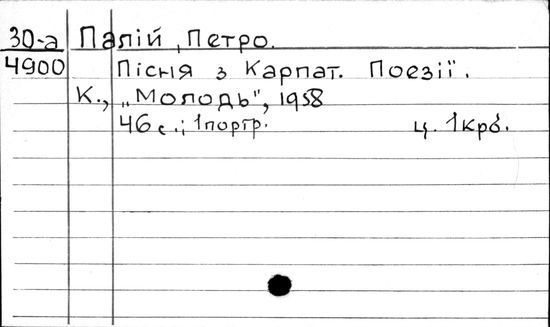 30-а Палій, Петро.
4900 Пісня з Карпат. Поезії.
К., „Молодь", 1958
46 с.; 1портр. ц. 1крб.